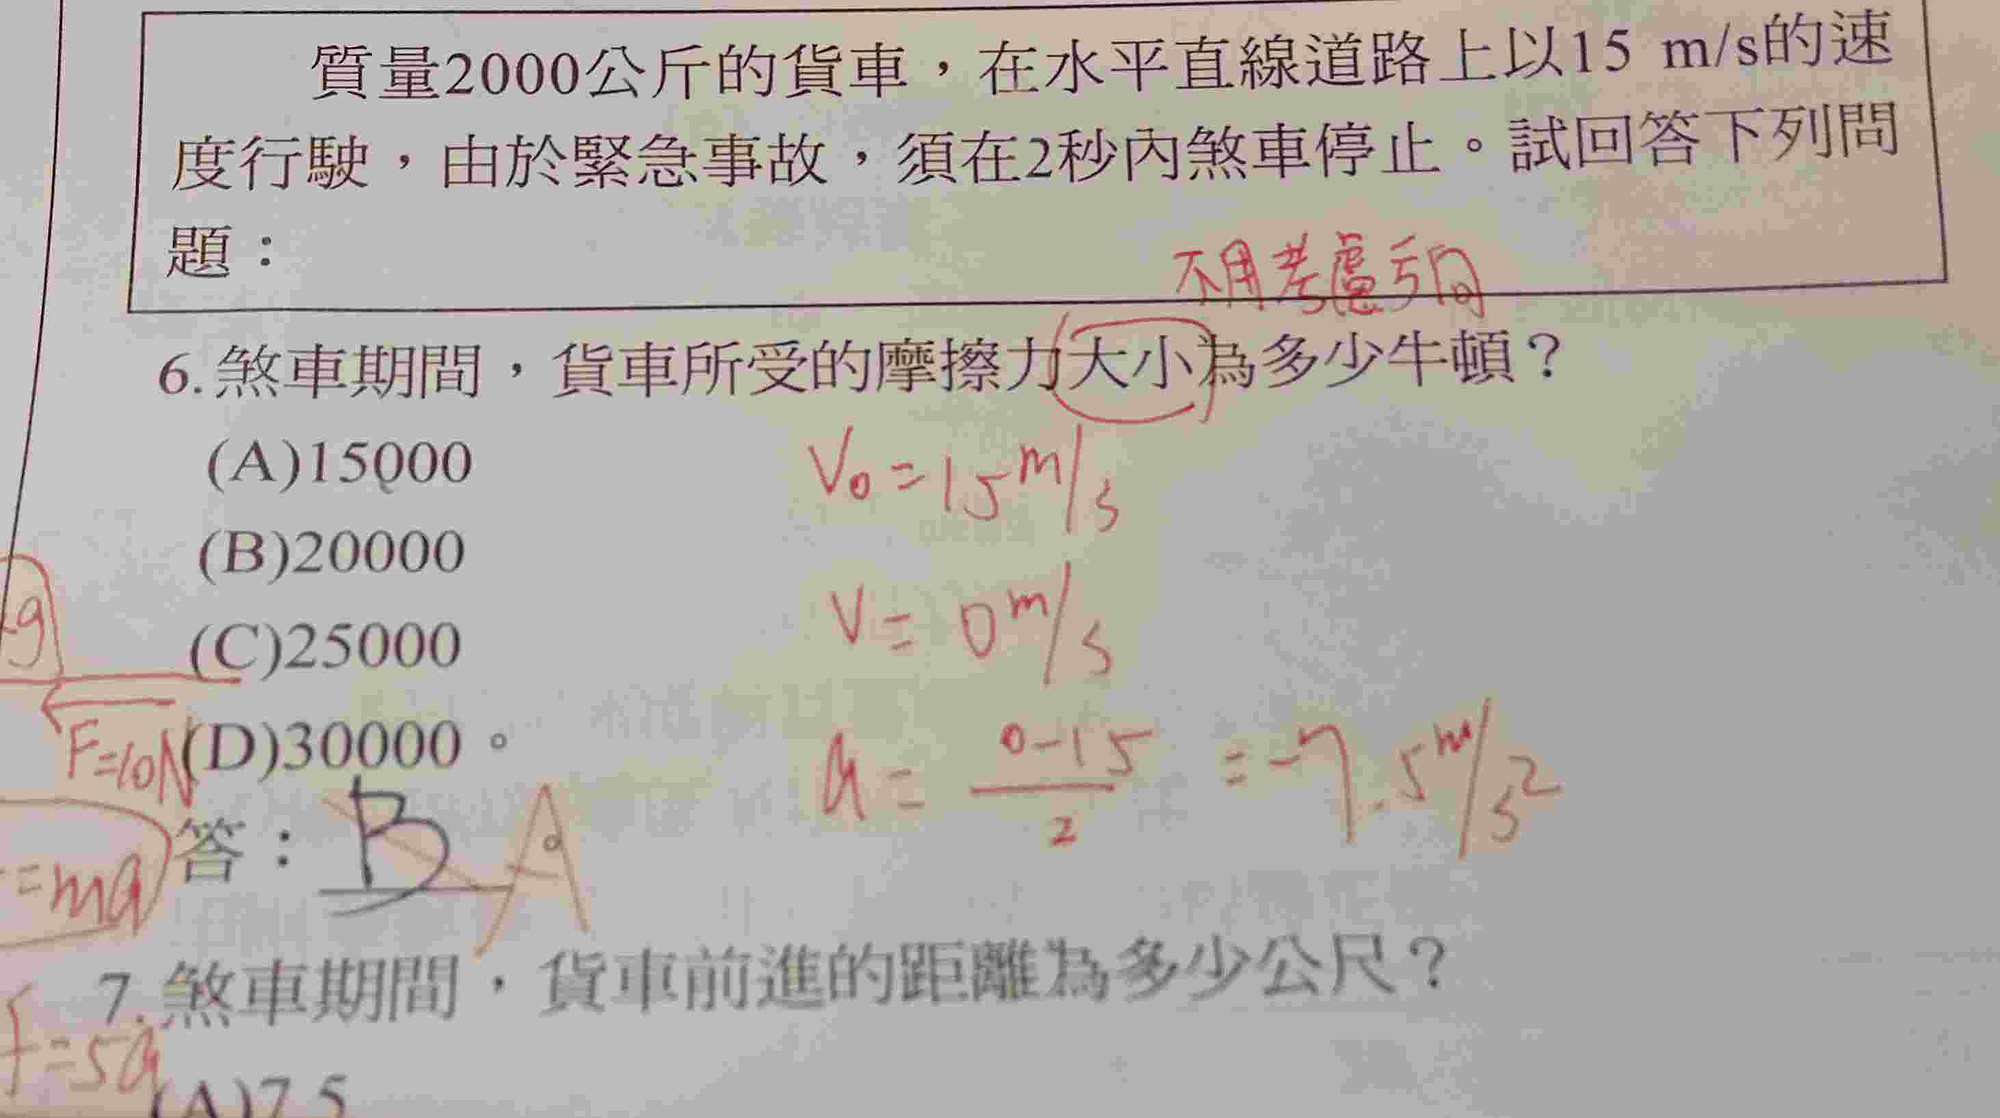 質量2000公斤的貨車，在水平直線道路上以15 m/s的速
度行駛，由於緊急事故，須在2秒內煞車停止。試回答下列問
題：
不用考慮方向
6.煞車期間，貨車所受的摩擦力大小為多少牛頓？
(A)15000
V₀=15 m/s
(B)20000
V= 0 m/s
(C)25000
F=10N
(D)30000。
a= 0-15/2 =-7.5 m/s²
答：B A
=ma
7.煞車期間，貨車前進的距離為多少公尺？
f=5a
(A)7.5